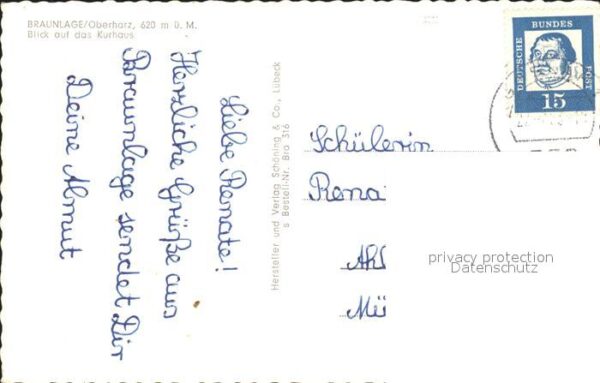 BRAUNLAGE/Oberharz, 620 m ü. M.
Blick auf das Kurhaus
Liebe Renate!
Herzliche Grüße aus
Braunlage sendet Dir
Deine Almut
Hersteller und Verlag Schöning & Co., Lübeck
s Bestell-Nr. Bra 316
DEUTSCHE BUNDES POST
15
Schülerin
Rena
Ahl
Mü
privacy protection
Datenschutz